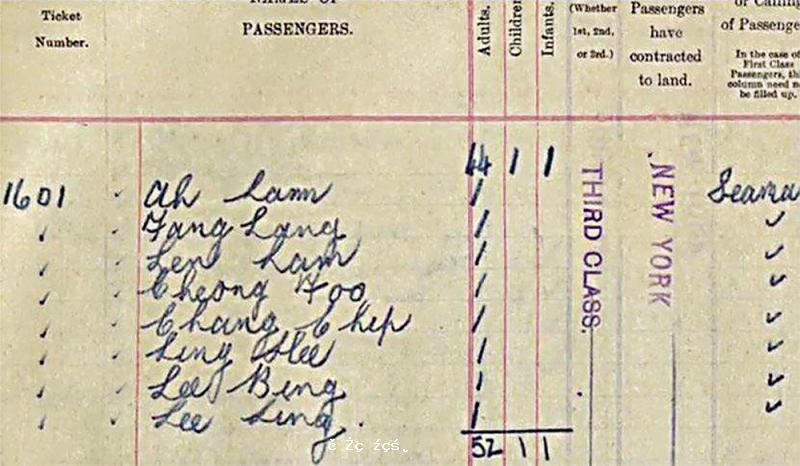 Ticket Number.
NAMES OF PASSENGERS.
Adults.
Children
Infants.
(Whether 1st, 2nd, or 3rd.)
Passengers have contracted to land.
of Passenge
In the case of First Class Passengers, th column need n be filled up.
44 1 1
1601 Ah Lam Seama
Fang Lang
Len Lam
Cheong Foo
Chang Chip
Ling Hee
Lee Bing
Lee Ling.
THIRD CLASS.
NEW YORK
52 1 1